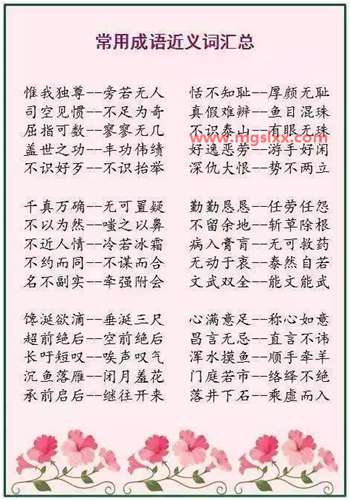 常用成语近义词汇总
惟我独尊--旁若无人 恬不知耻--厚颜无耻
司空见惯--不足为奇 真假难辨--鱼目混珠
www.mgslxx.com
屈指可数--寥寥无几 不识泰山--有眼无珠
盖世之功--丰功伟绩 好逸恶劳--游手好闲
不识好歹--不识抬举 深仇大恨--势不两立
千真万确--无可置疑 勤勤恳恳--任劳任怨
不以为然--嗤之以鼻 不留余地--斩草除根
不近人情--冷若冰霜 病入膏肓--无可救药
不约而同--不谋而合 无动于衷--泰然自若
名不副实--牵强附会 文武双全--能文能武
馋涎欲滴--垂涎三尺 心满意足--称心如意
超前绝后--空前绝后 昌言无忌--直言不讳
长吁短叹--唉声叹气 浑水摸鱼--顺手牵羊
沉鱼落雁--闭月羞花 门庭若市--络绎不绝
承前启后--继往开来 落井下石--乘虚而入